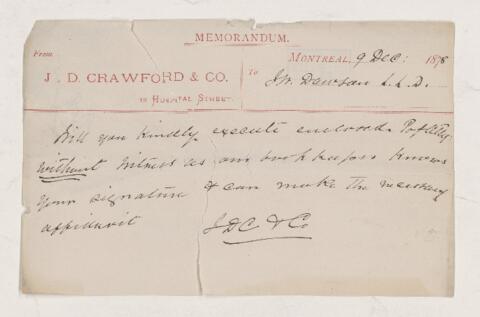 MEMORANDUM.
From
J. D. CRAWFORD & CO.
HOSPITAL STREET.
MONTREAL, 9 Dec: 1878
To
J W. Dawson L.L.D.
Will you kindly execute enclosed P of Atty
without witness as our bookkeeper knows
your signature & can make the necessary
affidavit
J D C & Co